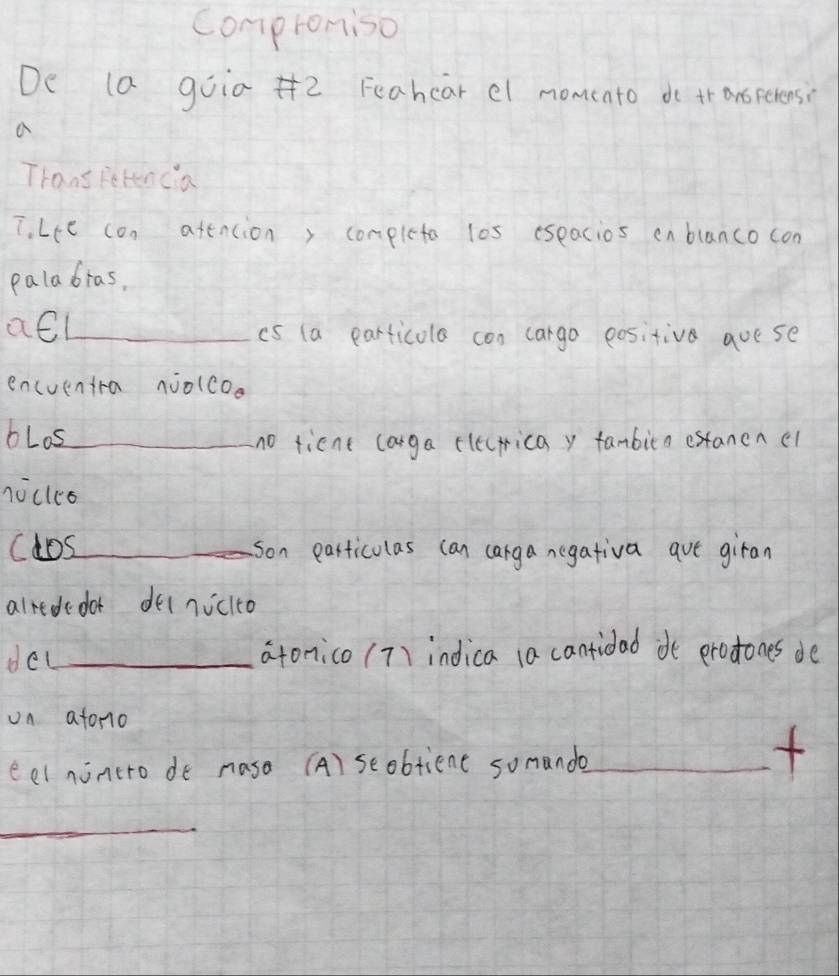 Compromiso
De la guia #2 Feahcar el momento de transferensi
a
Transferencia
I. Lee con atencion y completa los espacios en blanco con
palabras.
a El __________ es la particula con carga positiva que se
encuentra núolco.
b Los __________ no tiene carga electrica y tambien estanen el
núcleo
C Los __________ son particulas can carga negativa que giran
alrededor del núcleo
d el __________ átomico (7) indica la cantidad de protones de
un atomo
e el número de masa (A) se obtiene sumando __________ +
__________